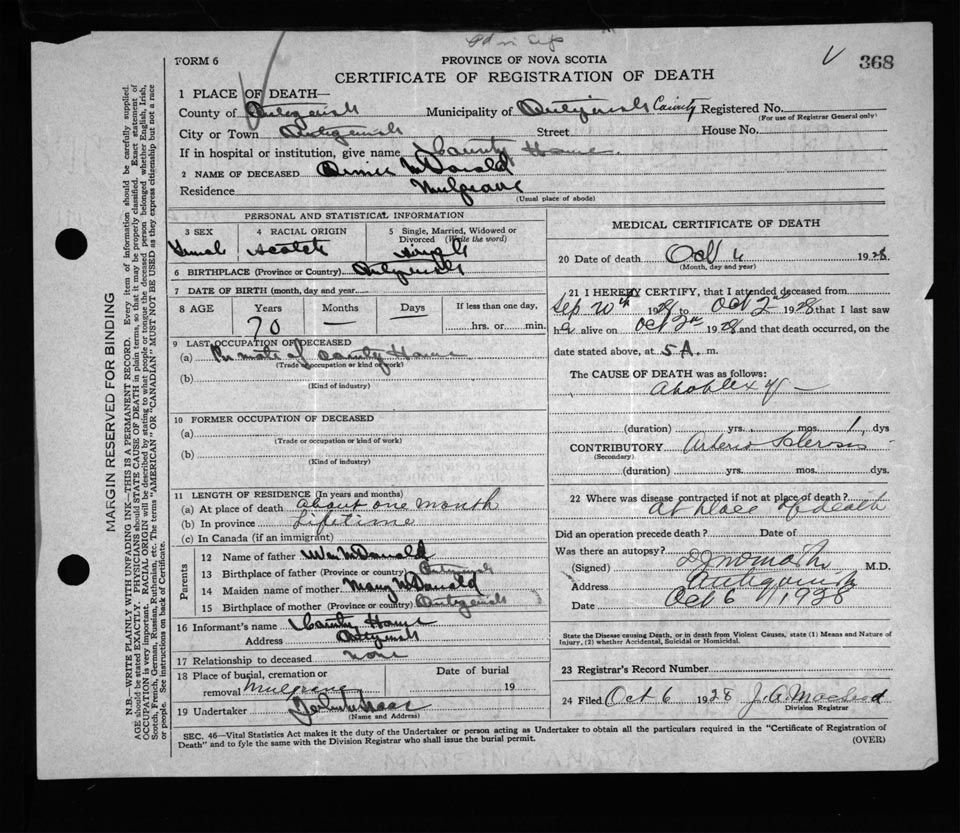 FORM 6
PROVINCE OF NOVA SCOTIA
368
CERTIFICATE OF REGISTRATION OF DEATH
1 PLACE OF DEATH—
County of Antigonish Municipality of Antigonish County Registered No.
(For use of Registrar General only)
City or Town Antigonish Street House No.
If in hospital or institution, give name County Home.
2 NAME OF DECEASED McDonald
Residence Mulgrave
(Usual place of abode)
PERSONAL AND STATISTICAL INFORMATION
3 SEX 4 RACIAL ORIGIN 5 Single, Married, Widowed or Divorced (Write the word)
Scotch single
6 BIRTHPLACE (Province or Country) Antigonish
7 DATE OF BIRTH (month, day and year)
8 AGE Years Months Days If less than one day,
70 — hrs. or min.
9 LAST OCCUPATION OF DECEASED
(a) Inmate of County Home
(Trade, occupation or kind of work)
(b)
(Kind of industry)
10 FORMER OCCUPATION OF DECEASED
(a)
(Trade or occupation or kind of work)
(b)
(Kind of industry)
11 LENGTH OF RESIDENCE (In years and months)
(a) At place of death about one month
(b) In province Lifetime
(c) In Canada (if an immigrant)
Parents
12 Name of father Wm McDonald
13 Birthplace of father (Province or country) Antigonish
14 Maiden name of mother Mary McDonald
15 Birthplace of mother (Province or country) Antigonish
16 Informant's name County Home
Address Antigonish
17 Relationship to deceased none
18 Place of burial, cremation or removal Mulgrave
Date of burial
19
19 Undertaker
(Name and Address)
MEDICAL CERTIFICATE OF DEATH
20 Date of death Oct 1928
(Month, day and year)
21 I HEREBY CERTIFY, that I attended deceased from
Sep 20th 1928 to Oct 2nd 1928 that I last saw
h alive on Oct 2nd 1928 and that death occurred, on the
date stated above, at 5 A. m.
The CAUSE OF DEATH was as follows:
Apoplexy —
(duration) yrs. mos. 1 dys
CONTRIBUTORY Arterio Sclerosis
(Secondary)
(duration) yrs. mos. dys.
22 Where was disease contracted if not at place of death?
At place of death
Did an operation precede death? Date of
Was there an autopsy?
(Signed) M.D.
Address Antigonish
Date Oct 6 1928
State the Disease causing Death, or in death from Violent Causes, state (1) Means and Nature of
Injury, (2) whether Accidental, Suicidal or Homicidal.
23 Registrar's Record Number
24 Filed Oct 6 1928 J. A. Macleod
Division Registrar
SEC. 46—Vital Statistics Act makes it the duty of the Undertaker or person acting as Undertaker to obtain all the particulars required in the "Certificate of Registration of
Death" and to fyle the same with the Division Registrar who shall issue the burial permit.
(OVER)
MARGIN RESERVED FOR BINDING
N.B.—WRITE PLAINLY WITH UNFADING INK—THIS IS A PERMANENT RECORD. Every item of information should be carefully supplied.
AGE should be stated EXACTLY. PHYSICIANS should STATE CAUSE OF DEATH in plain terms, so that it may be properly classified. Exact statement of
OCCUPATION is very important. RACIAL ORIGIN will be described by stating to what people or tongue the deceased person belonged whether English, Irish,
Scotch, French, German, Russian, Ruthenian, etc. The terms "AMERICAN" OR "CANADIAN" MUST NOT BE USED as they express citizenship but not a race
or people. See instructions on back of Certificate.